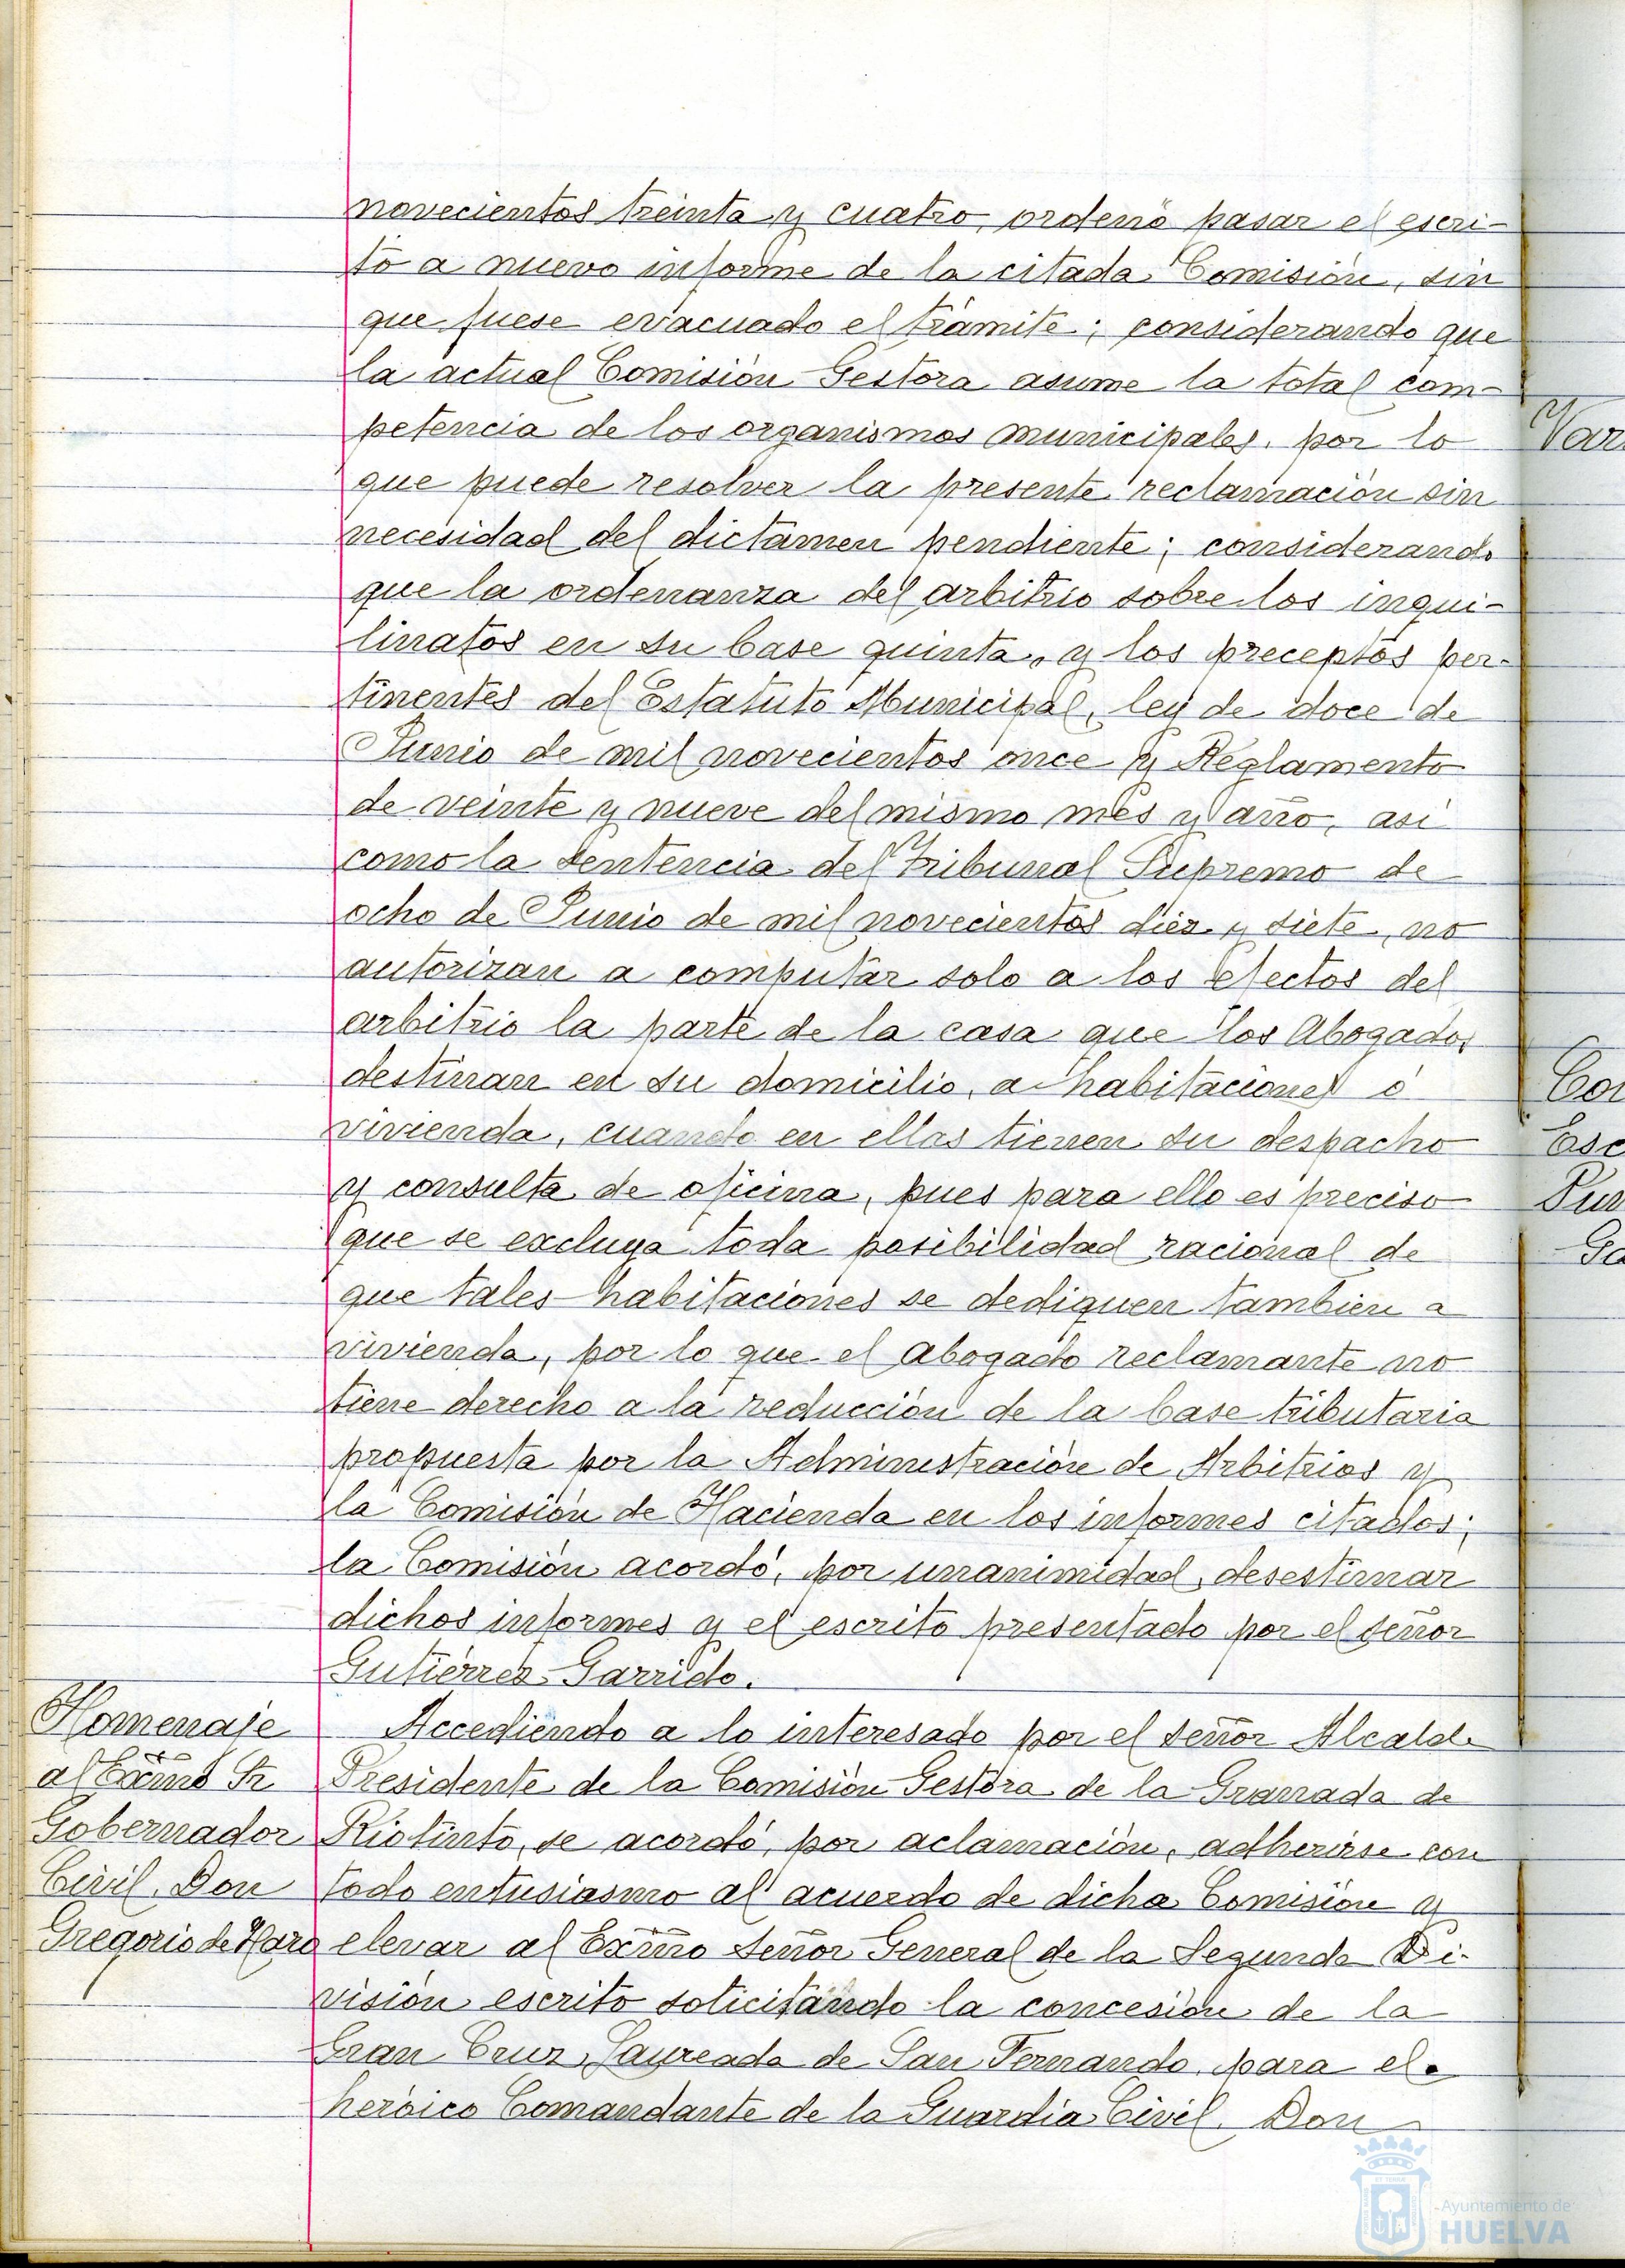 novecientos treinta y cuatro, ordenó pasar el escri-
to a nuevo informe de la citada Comisión, sin
que fuese evacuado el trámite; considerando que
la actual Comisión Gestora asume la total com-
petencia de los organismos municipales, por lo
que puede resolver la presente reclamación sin
necesidad del dictámen pendiente; considerando
que la ordenanza del arbitrio sobre los inqui-
linatos en su base quinta, y los preceptos per-
tinentes del Estatuto Municipal, ley de doce de
Junio de mil novecientos once y Reglamento
de veinte y nueve del mismo mes y año, asi
como la sentencia del Tribunal Supremo de
ocho de Junio de mil novecientos diez y siete, no
autorizan a computar solo a los efectos del
arbitrio la parte de la casa que los Abogados
destinan en su domicilio, a habitaciones ó
vivienda, cuando en ellas tienen su despacho
y consulta de oficina, pues para ello es preciso
que se excluya toda posibilidad racional de
que tales habitaciones se dediquen tambien a
vivienda, por lo que el abogado reclamante no
tiene derecho a la reducción de la base tributaria
propuesta por la Administración de Arbitrios y
la Comisión de Hacienda en los informes citados;
la Comisión acordó, por unanimidad, desestimar
dichos informes y el escrito presentado por el señor
Gutiérrez Garrido.
Homenaje
al Excmo Sr
Gobernador
Civil, Don
Gregorio de Haro
Accediendo a lo interesado por el señor Alcalde
Presidente de la Comisión Gestora de la Granada de
Riotinto, se acordó, por aclamación, adherirse con
todo entusiasmo al acuerdo de dicha Comisión y
elevar al Excmo señor General de la Segunda Di-
visión escrito solicitando la concesión de la
Gran Cruz Laureada de San Fernando, para el
heróico Comandante de la Guardia Civil, Don
Var
Co
Esc
Ga
Ayuntamiento de
HUELVA